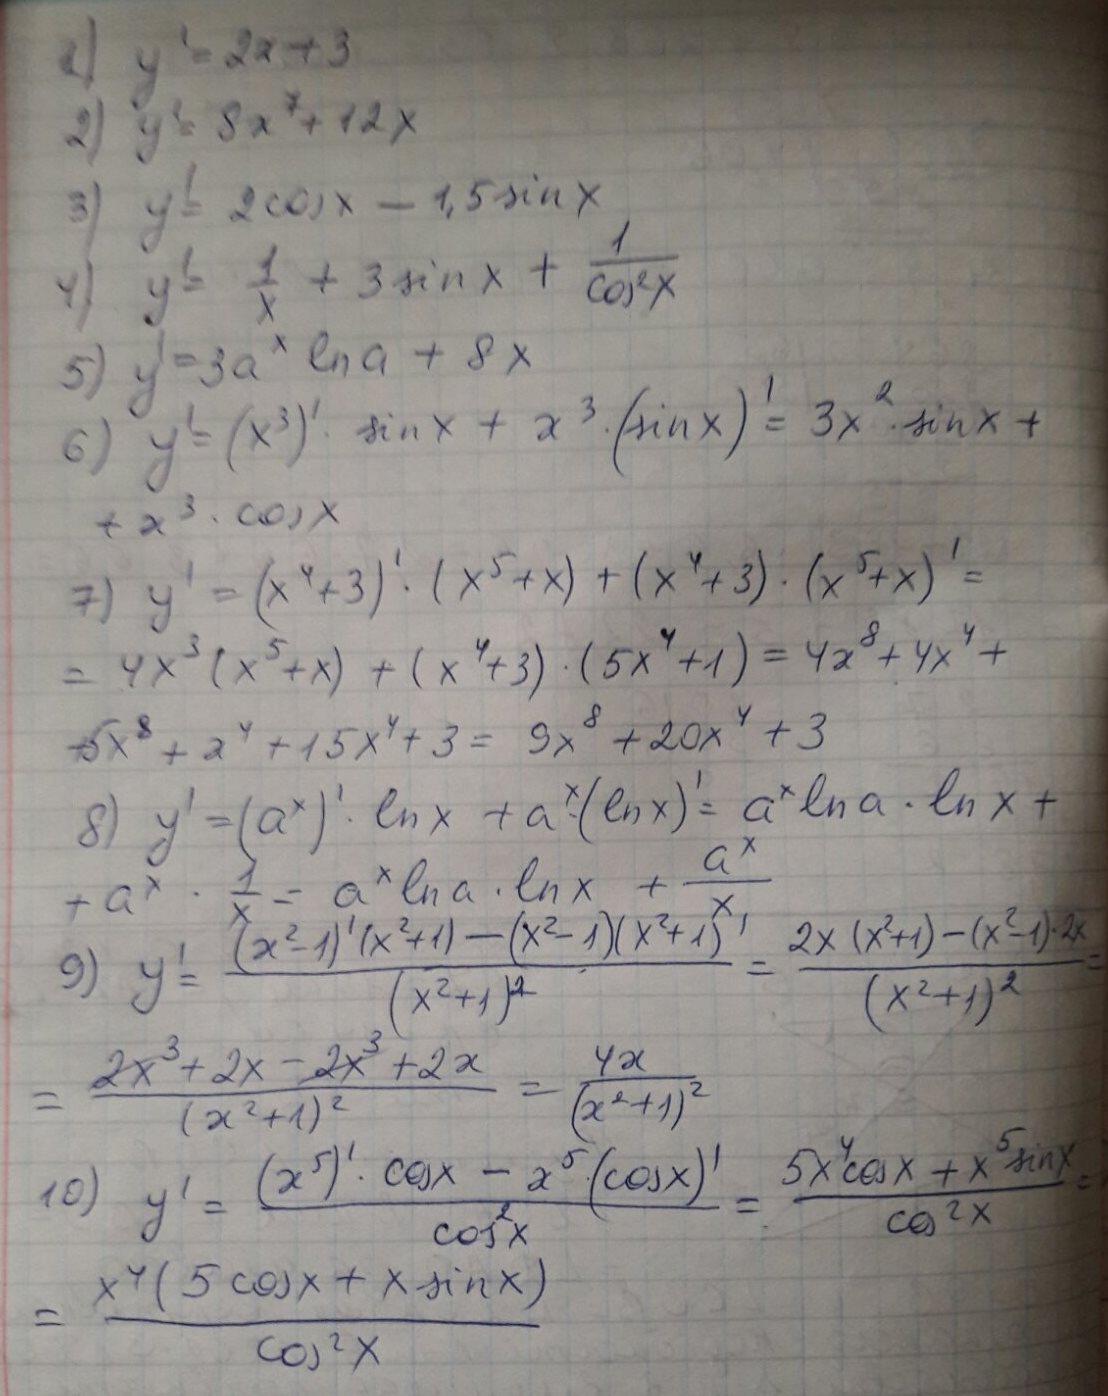 1) y' = 2x + 3
2) y' = 8x⁷ + 12x
3) y' = 2cosx − 1,5sinx
4) y' = 1/x + 3sinx + 1/cos²x
5) y' = 3aˣ lna + 8x
6) y' = (x³)' · sinx + x³ · (sinx)' = 3x² · sinx +
+ x³ · cosx
7) y' = (x⁴+3)' · (x⁵+x) + (x⁴+3) · (x⁵+x)' =
= 4x³(x⁵+x) + (x⁴+3) · (5x⁴+1) = 4x⁸ + 4x⁴ +
+5x⁸ + x⁴ + 15x⁴ + 3 = 9x⁸ + 20x⁴ + 3
8) y' = (aˣ)' · lnx + aˣ · (lnx)' = aˣ lna · lnx +
+ aˣ · 1/x = aˣ lna · lnx + aˣ/x
9) y' = ((x²−1)'(x²+1) − (x²−1)(x²+1)')/(x²+1)² = (2x(x²+1) − (x²−1)·2x)/(x²+1)² =
= (2x³ + 2x − 2x³ + 2x)/(x²+1)² = 4x/(x²+1)²
10) y' = ((x⁵)' · cosx − x⁵ · (cosx)')/cos²x = (5x⁴cosx + x⁵sinx)/cos²x =
= x⁴(5cosx + x sinx)/cos²x